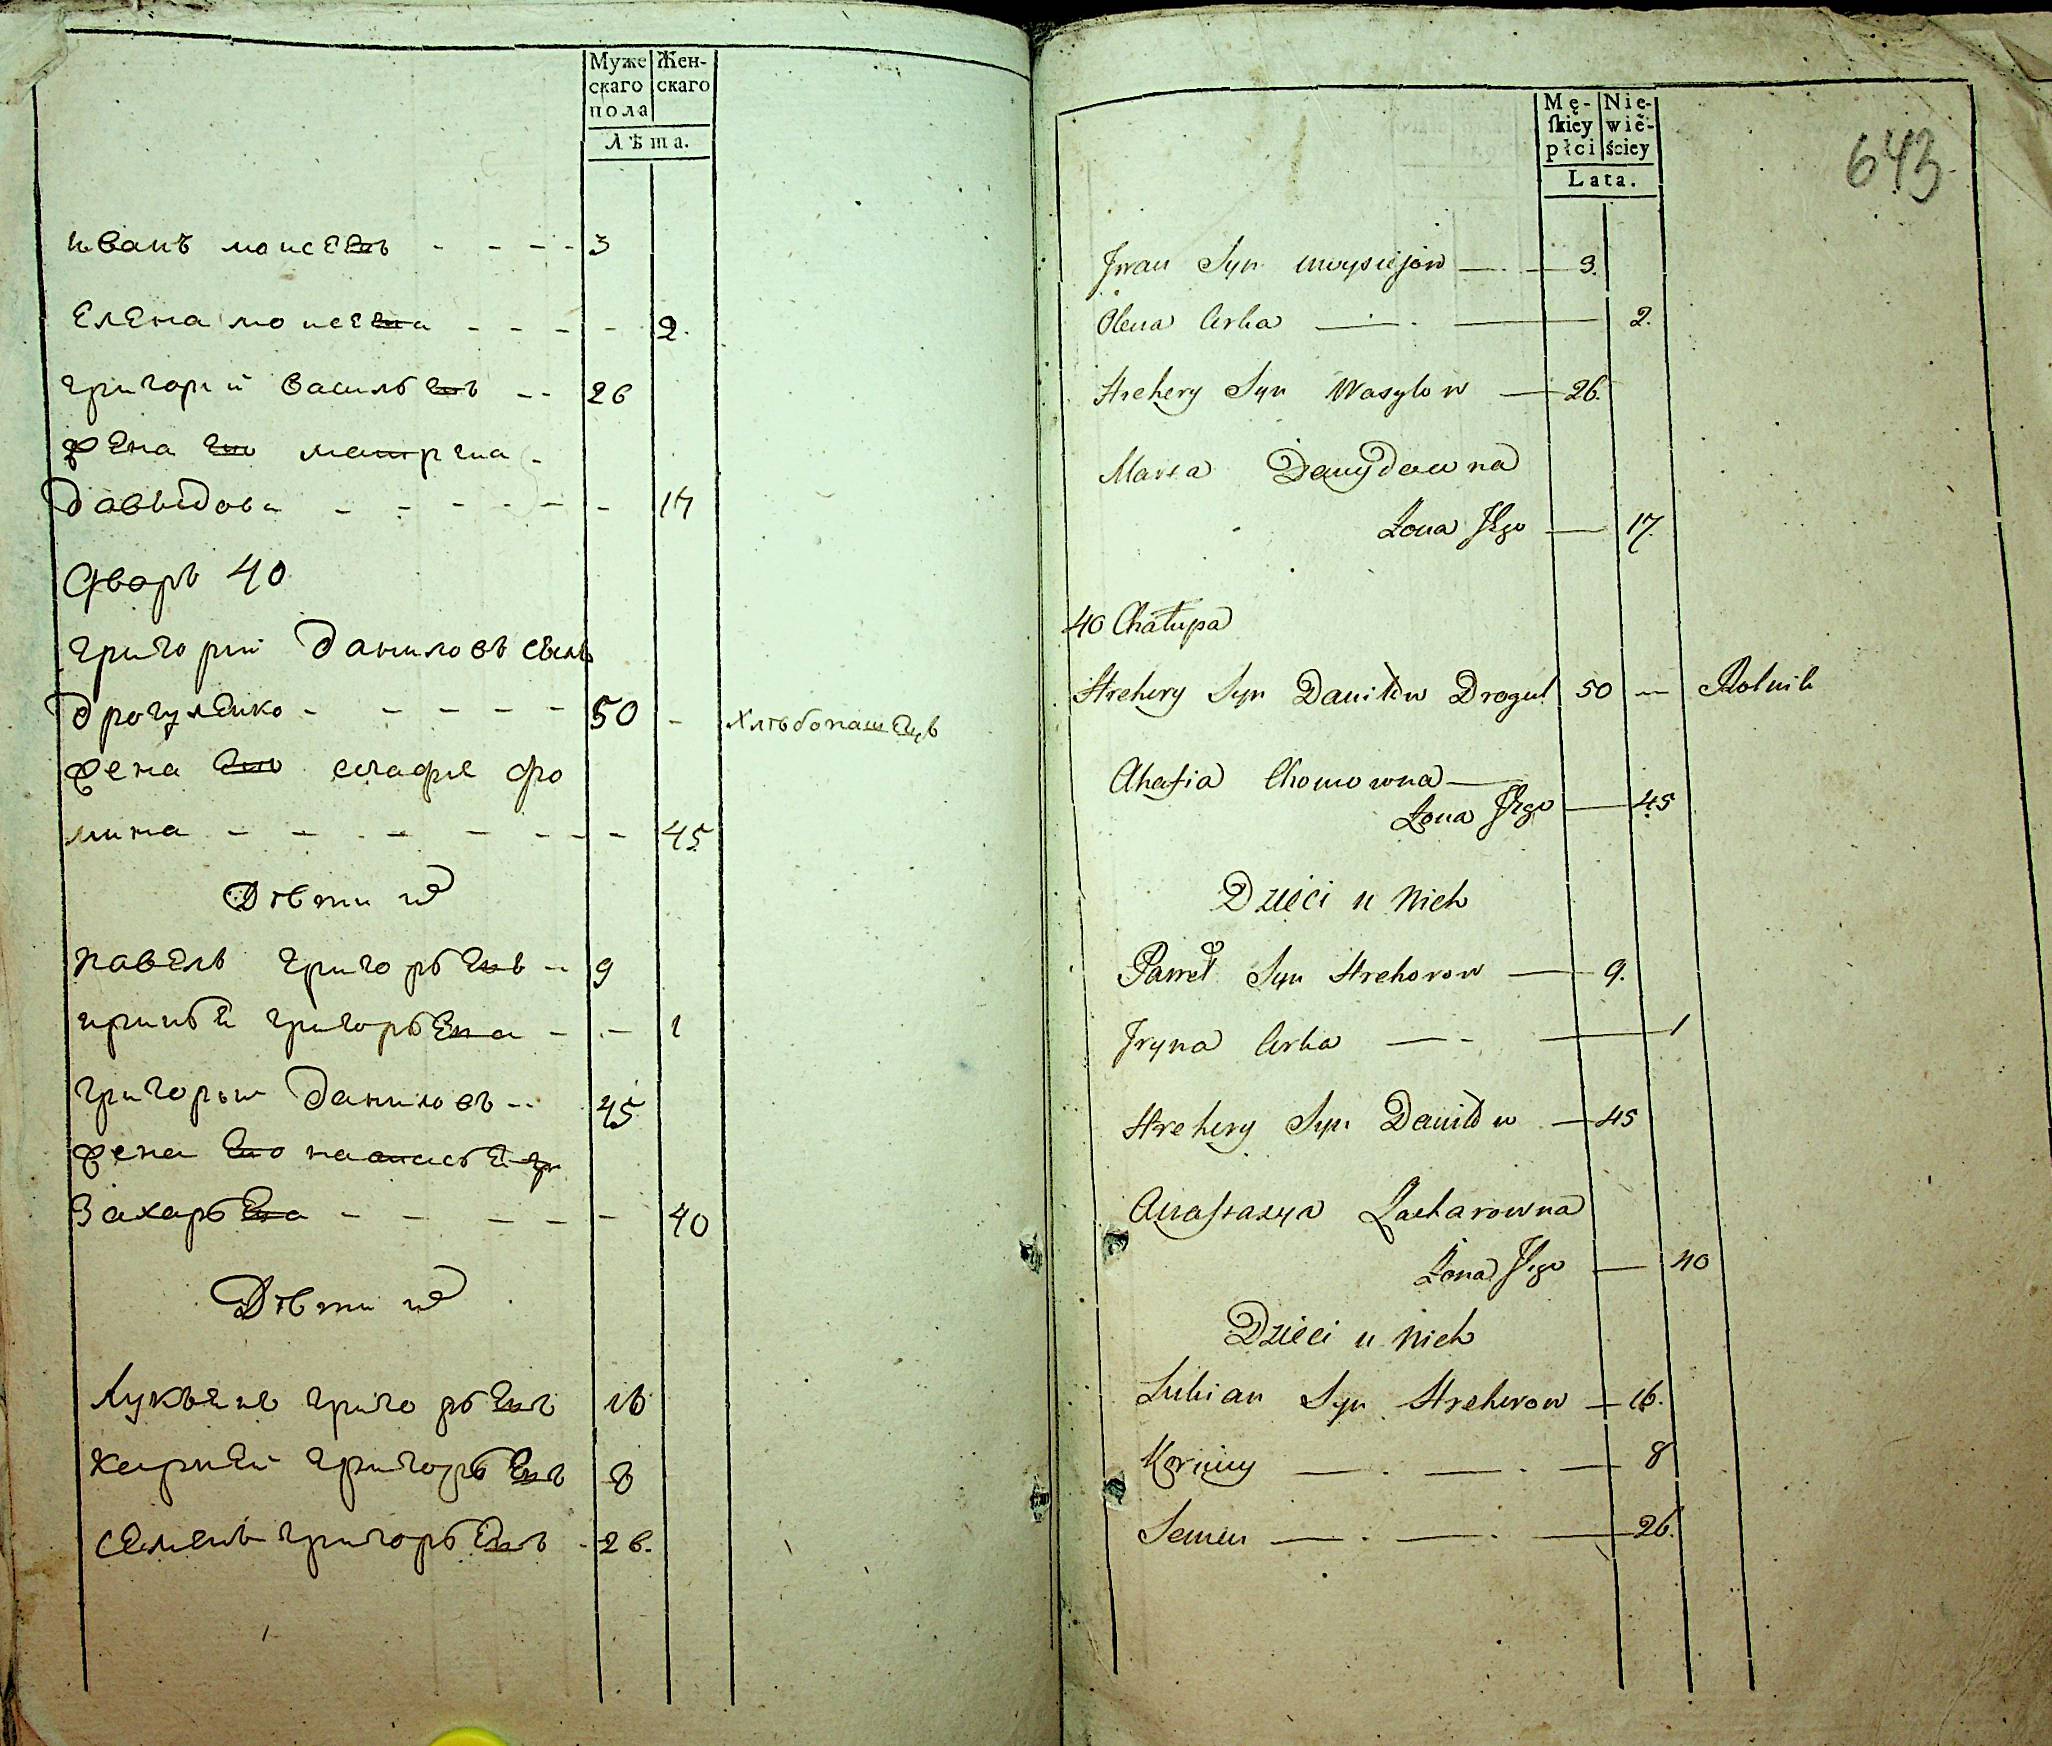 Муже
скаго
пола
Жен-
скаго
Лѣта.
иванъ моисеевъ - - - - 3
Елена моисеева - - - - 2.
григорий васильевъ - - 26
жена его матрена -
давыдова - - - - - - 17
Дворъ 40
григорий даниловъ сынъ
дрогуленко - - - - - 50 - хлѣбопашецъ
жена его агафия фо
мина - - - - - - - 45
Дѣти их
павелъ григорьевъ - 9
григорьева - - 1
григорьи даниловъ - - 45
жена его настасья
захарьева - - - - - - 40
Дѣти их
лукьянъ григорьевъ 16
григорьевъ 8
семенъ григорьевъ - 26.
Mę-
ſkiey
płci
Nie-
wie-
ściey
Lata.
643
Jwan Syn Moysiejow — - — 3.
Olena Curka — . — 2.
Hrehery Syn Wasylow — 26.
Marta Dawydowna
Żona Jego — 17.
40 Chałupa
Hrehery Syn Daniłow Drogul 50 — Rolnik
Ahafia Chomowna —
Żona Jego — 45
Dzieci u Nich
Paweł Syn Hrehorow — 9.
Jryna Curka — - — 1
Hrehery Syn Daniłow — 45
Anastazya Zacharowna
Żona Jego — 40
Dzieci u Nich
Lukian Syn Hrehorow — 16.
— . — . — 8
Semen — . — . — 26.